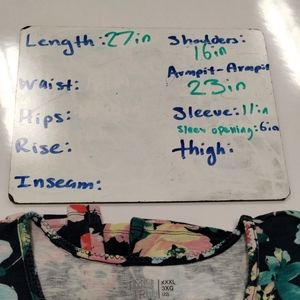 Length: 27in
Shoulders:
16in
Waist:
Armpit-Armpit
23in
Hips:
Sleeve: 11in
Sleev opening: 6in
Rise:
Thigh:
Inseam:
XXXL
3XG